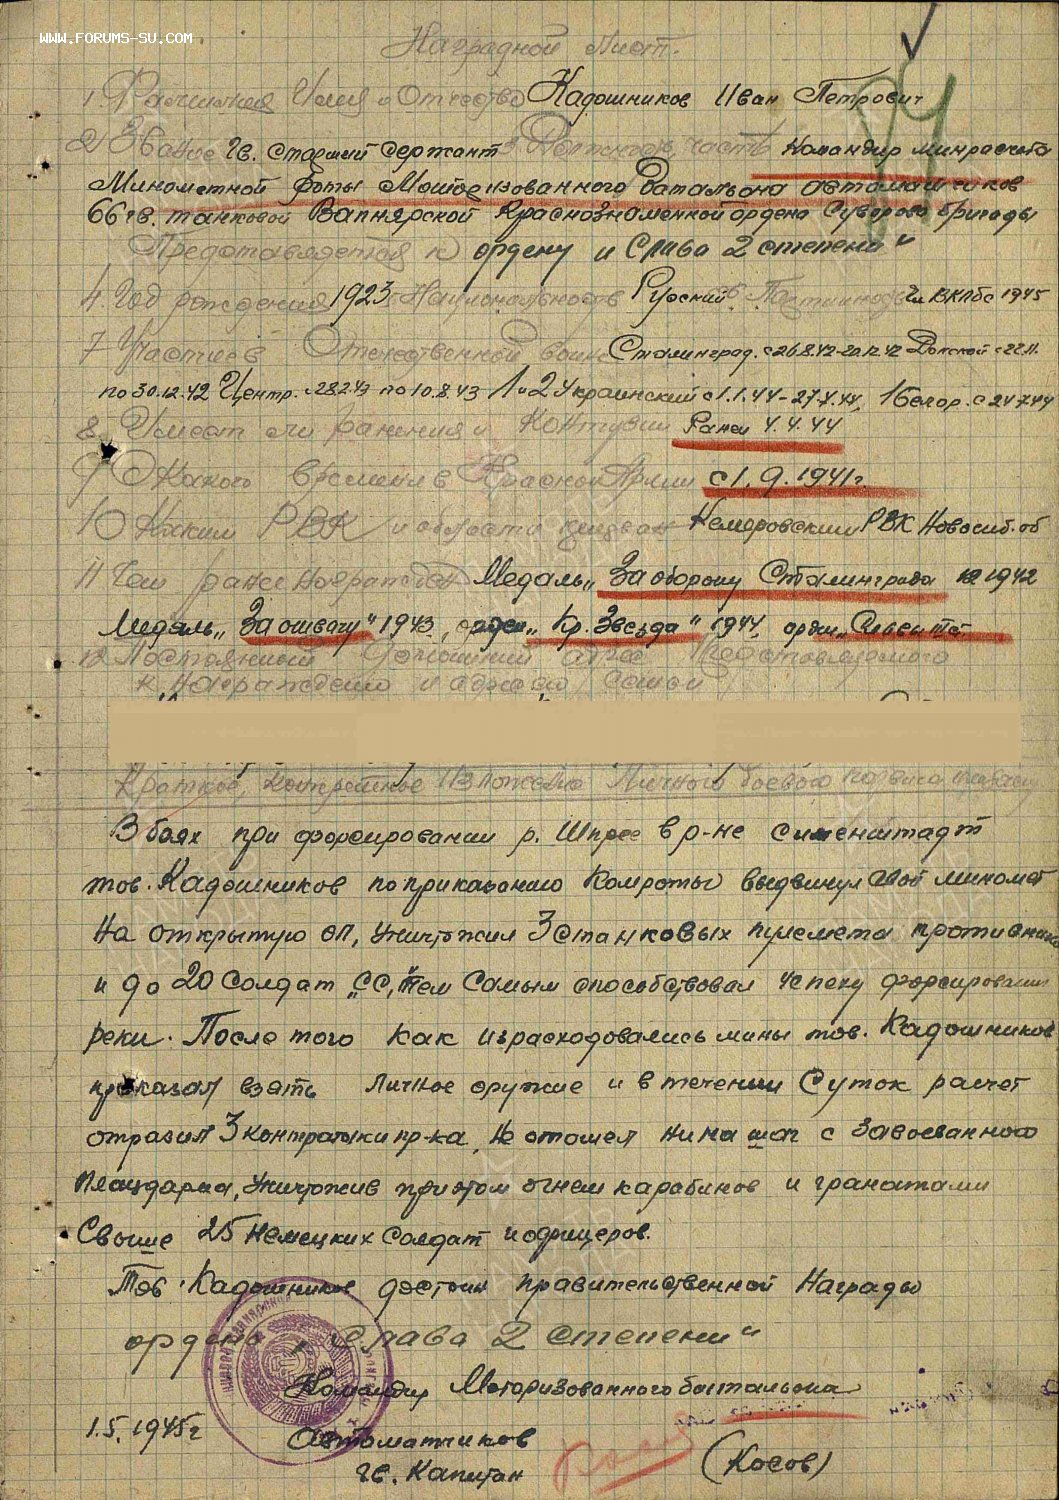 WWW.FORUMS-SU.COM
Наградной Лист.
1. Фамилия Имя и Отчество Кадошников Иван Петрович
2) Звание Гв. Старший Сержант 3. Должность, часть Командир минрасчета
Минометной Роты Моторизованного Батальона автоматчиков
66 гв. танковой Вапнярской Краснознаменной ордена Суворова бригады
Представляется к ордену "Слава 2 степени"
4. Год рождения 1923 5. Национальность Русский 6. Партийность Чл ВКПбс 1945
7 Участие в Отечественной войне Сталинград. с 26.8.42-20.12.42 Донской с 22.11.
по 30.12.42 Центр. с 28.2.43 по 10.8.43 1 и 2 Украинский с 1.1.44-27.4.44, 1 Белор. с 24.7.44
8. Имеет ли ранения и контузии Ранен 4.4.44
9 С какого времени в Красной Армии с 1.9.1941г.
10 Каким РВК и области призван Кемеровским РВК Новосиб. об
11 Чем ранее награжден Медаль "За оборону Сталинграда" 1942
Медаль "За отвагу" 1943, орден "Кр. Звезда" 1944, орден
12 Постоянный домашний адрес Представляемого
к Награждению и адрес Семьи
Краткое, конкретное Изложение Личного боевого подвига
В боях при форсировании р. Шпрее в р-не Сименштадт
тов. Кадошников по приказанию Комроты выдвинул свой миномет
На открытую ОП, уничтожил 3 станковых пулемета противника
и до 20 Солдат "СС", тем самым способствовал успеху форсирования
реки. После того как израсходовались мины тов. Кадошников
приказал взять личное оружие и в течении Суток расчет
отразил 3 контратаки пр-ка, не отошел ни на шаг с завоеванного
плацдарма, уничтожив при этом огнем карабинов и гранатами
Свыше 25 Немецких Солдат и офицеров.
Тов. Кадошников достоин правительственной Награды
ордена "Слава 2 степени"
Командир Моторизованного батальона
1.5.1945г Автоматчиков
Гв. Капитан (Косов)